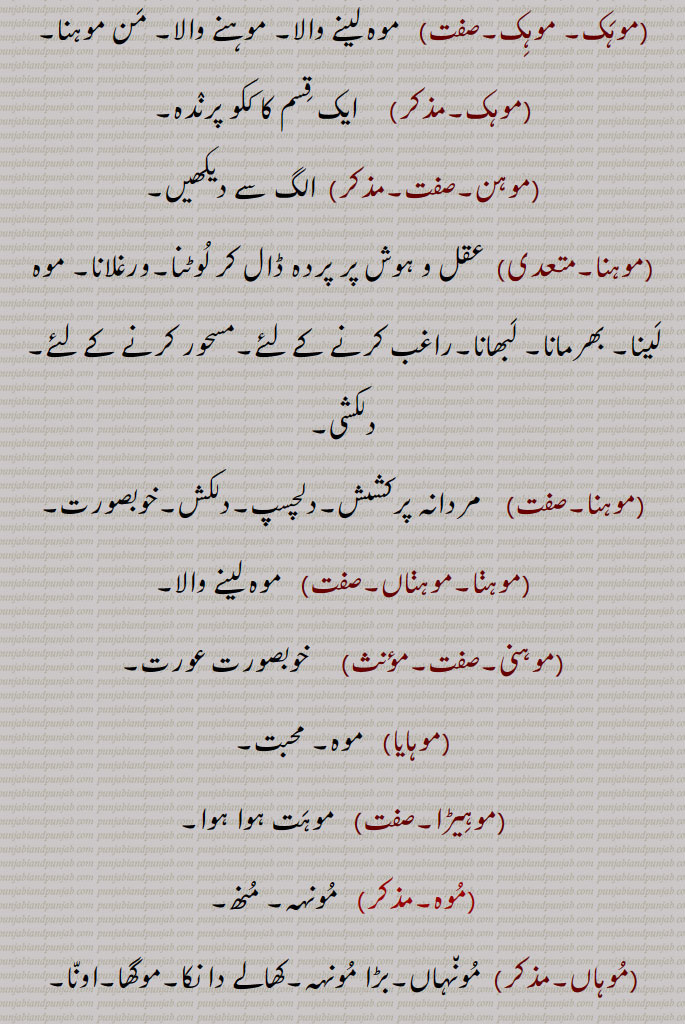 (موہَک۔ موہِک۔صفت) موہ لینے والا۔ موہنے والا۔ مَن موہنا۔
(موہک۔مذکر) ایک قِسم کا ککو پرنْدہ۔
(موہن۔صفت۔مذکر) الگ سے دیکھیں۔
(موہنا۔متعدی) عقل و ہوش پر پردہ ڈال کر لُوٹنا۔ورغلانا۔ موہ
لَینا۔ بھرمانا۔ لَبھانا۔راغب کرنے کے لئے۔مسحور کرنے کے لئے۔
دلکشی۔
(موہنا۔صفت) مردانہ پرکشش۔دلچسپ۔دلکش۔خوبصورت۔
(موہنْا۔موہنْاں۔صفت) موہ لینے والا۔
(موہنی۔صفت۔مؤنث) خوبصورت عورت۔
(موہایا) موہ۔ محبت۔
(موہِیڑا۔صفت) موہَت ہوا ہوا۔
(مُوہ۔مذکر) مُونہہ۔ مُنھ۔
(مُوہاں۔مذکر) مُونّہاں۔بڑا مُونہہ۔کھالے دا نکا۔موگھا۔اونّا۔